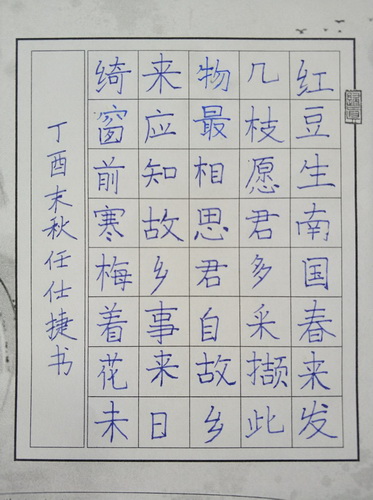 红豆生南国春来发
几枝愿君多采撷此
物最相思君自故乡
来应知故乡事来日
绮窗前寒梅着花未
丁酉末秋任仕捷书